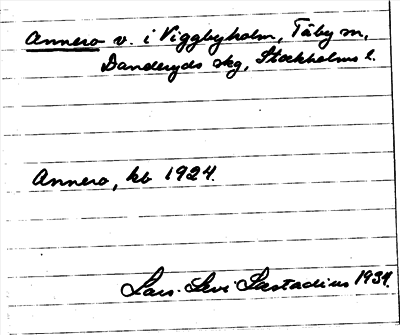 Annero v. i Viggbyholm, Täby sn,
Danderyds skg, Stockholms l.
Annero, kb 1924.
Lars-Levi Læstadius 1934.